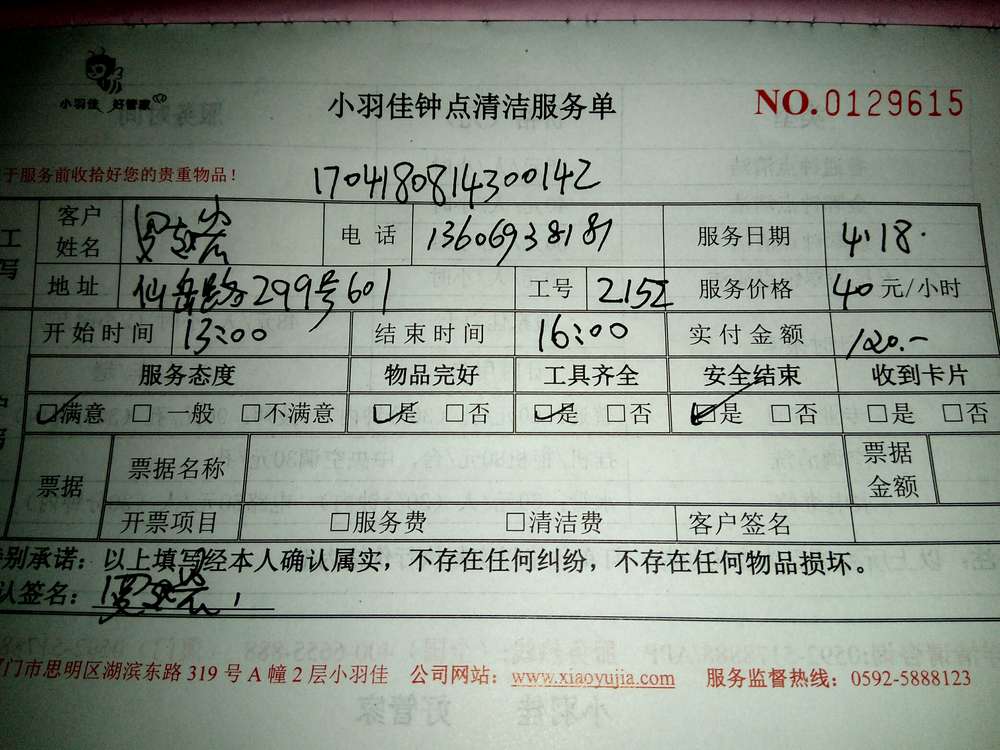 小羽佳 好管家
小羽佳钟点清洁服务单
NO.0129615
于服务前收拾好您的贵重物品！
1704180814300142
工 客户姓名 电话 13606938181 服务日期 4.18.
写 地址 仙岳路299号601 工号 服务价格 40元/小时
开始时间 13:00 结束时间 16:00 实付金额 120.-
服务态度 物品完好 工具齐全 安全结束 收到卡片
户 ☑满意 □一般 □不满意 ☑是 □否 ☑是 □否 ☑是 □否 □是 □否
票据 票据名称 票据金额
开票项目 □服务费 □清洁费 客户签名
别承诺：以上填写经本人确认属实，不存在任何纠纷，不存在任何物品损坏。
认签名：
门市思明区湖滨东路 319 号 A 幢 2 层小羽佳 公司网站：www.xiaoyujia.com 服务监督热线：0592-5888123